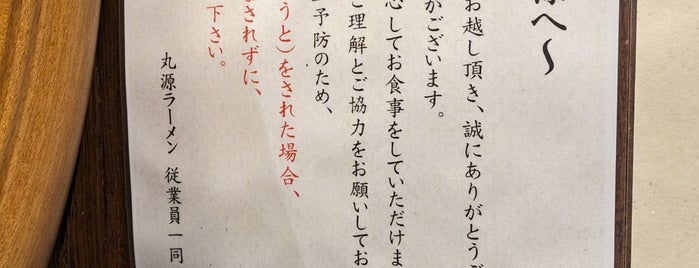 様へ〜
お越し頂き、誠にありがとうご
がございます。
心してお食事をしていただけま
ご理解とご協力をお願いしてお
予防のため、
うと)をされた場合、
されずに、
下さい。
丸源ラーメン 従業員一同